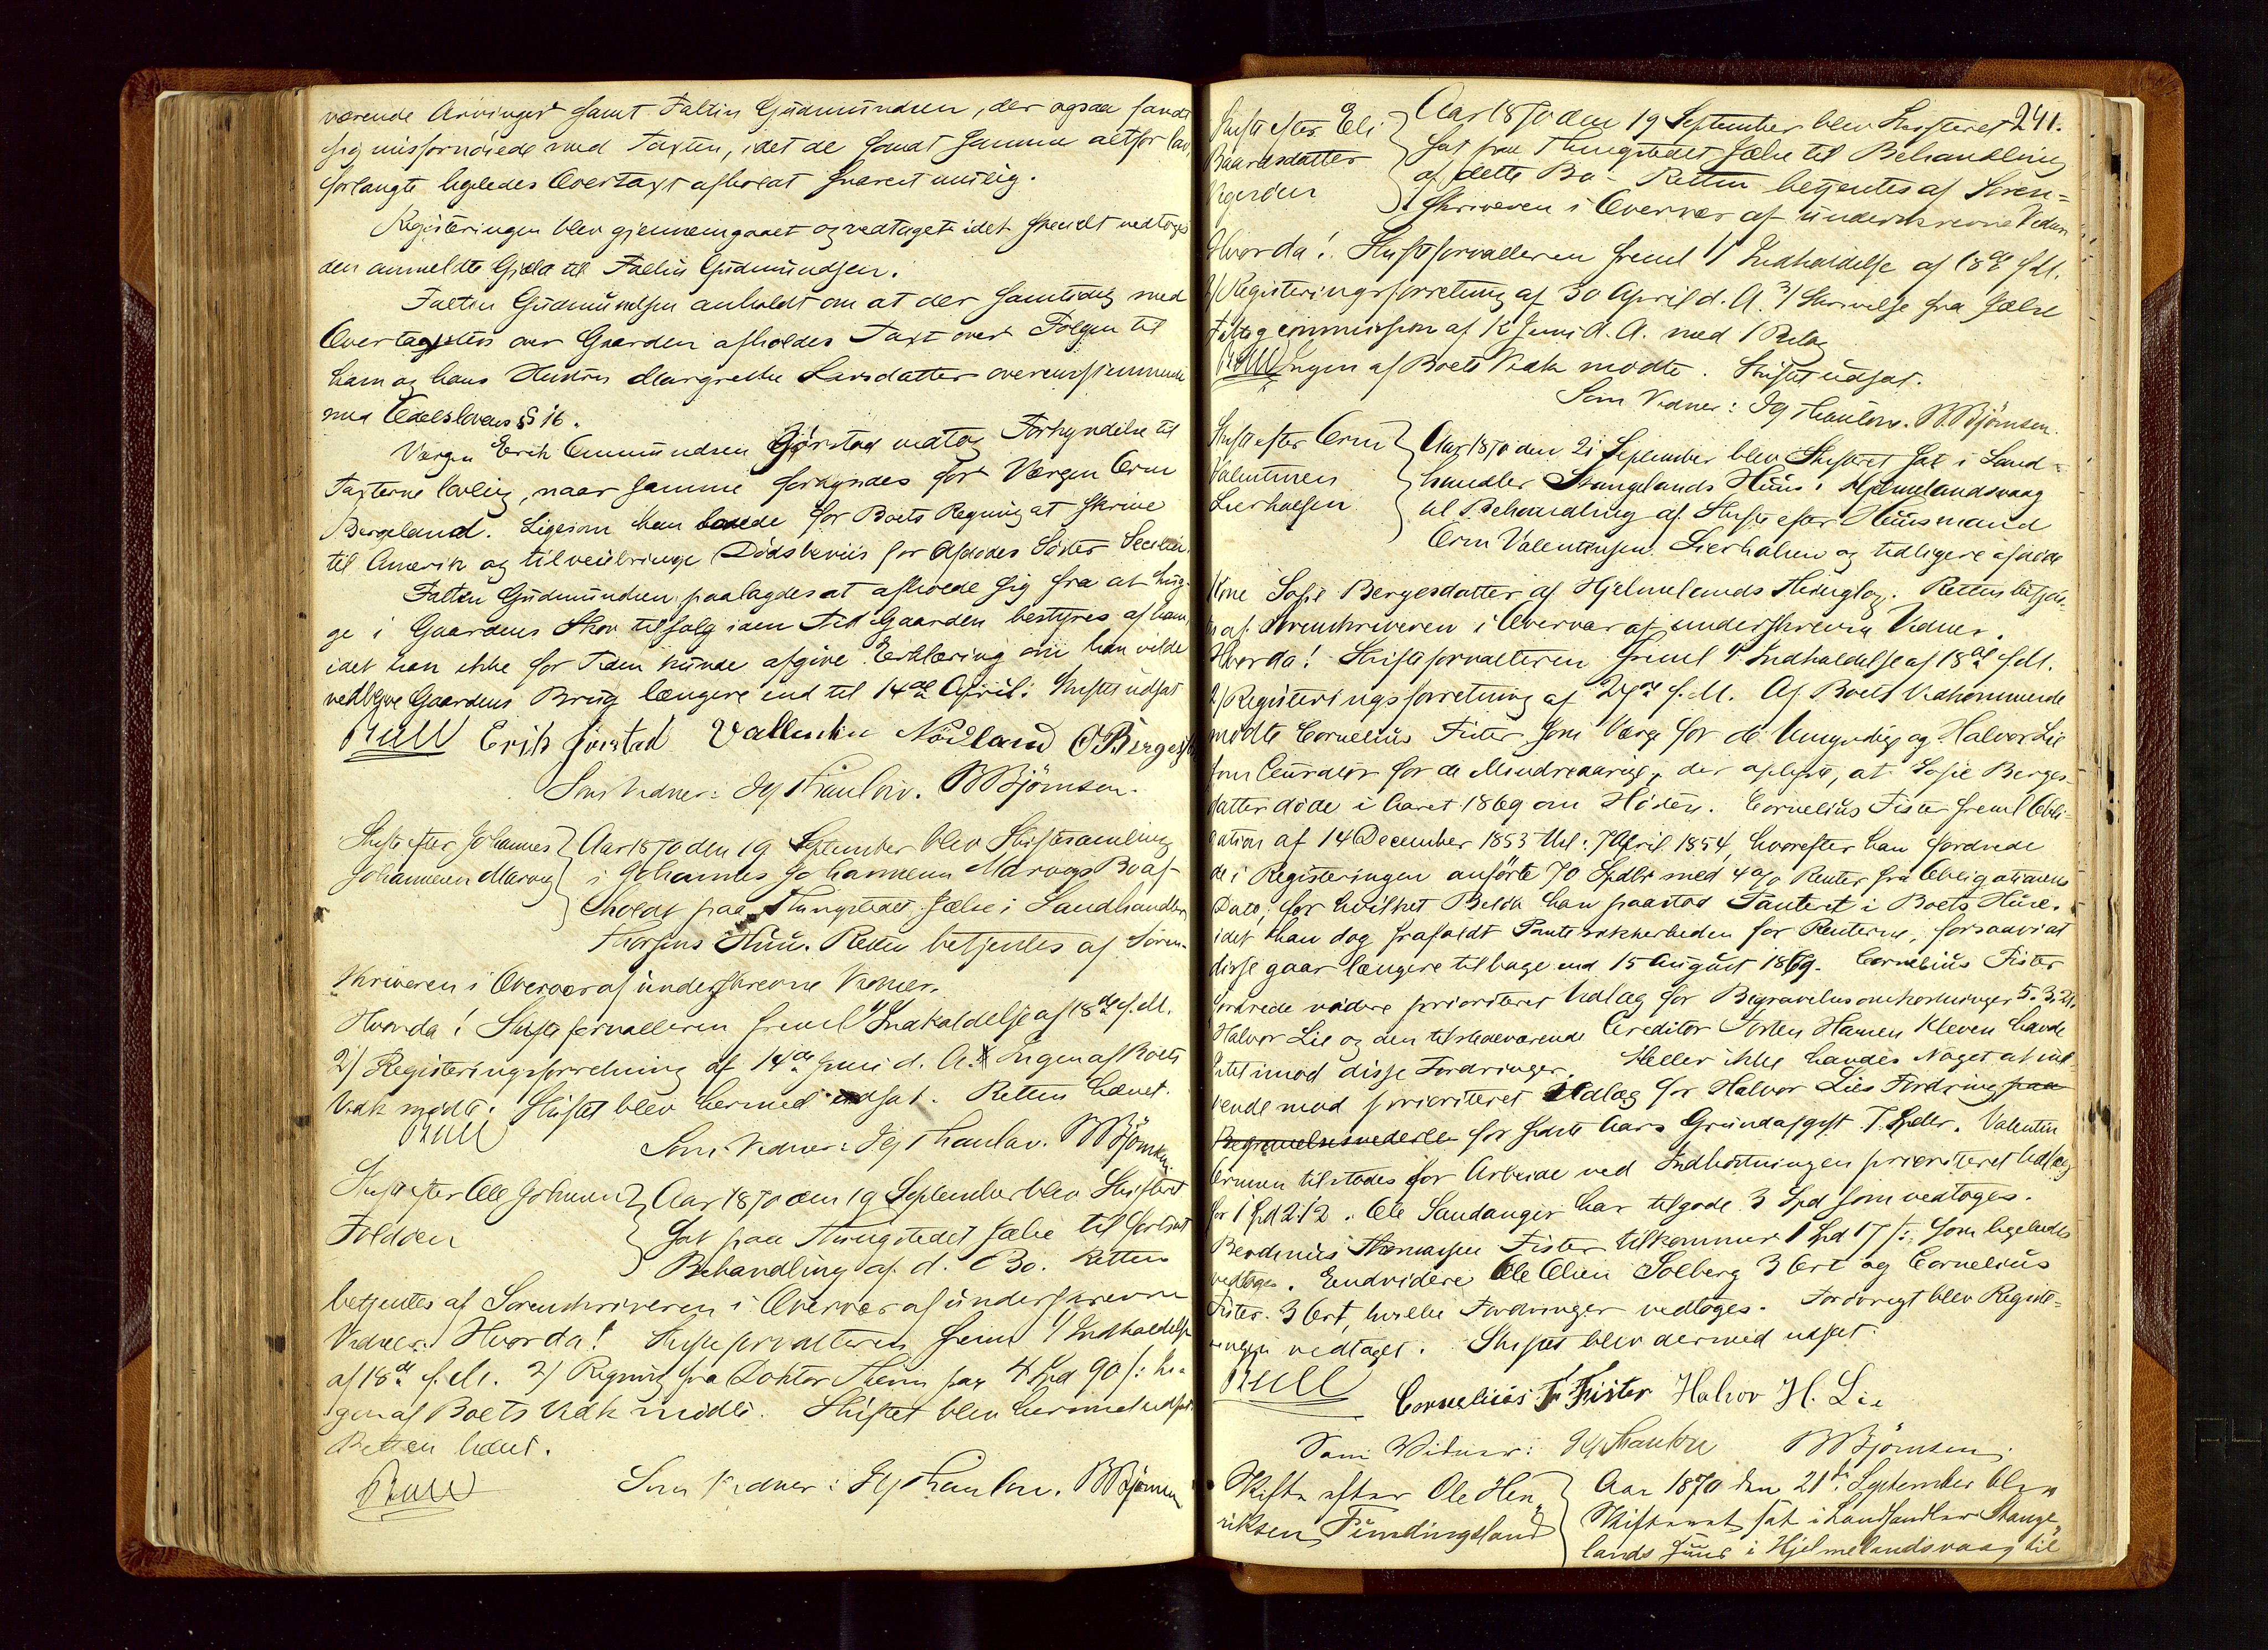 værende Arvinger samt Faltin Gudmundsen, der ogsaa fandt
sig misfornøiede med Taxten, idet de fandt samme altfor lav,
forlangte ligeledes Overtaxt afholdt snarest mulig.
Registeringen blev gjennemgaaet og vedtaget idet specielt vedtoges
den anmeldte Gjæld til Faltin Gudmundsen.
Faltin Gudmundsen anholdt om at der samtidig med
Overtaxten over Gaarden afholdes Taxt over Følgen til
ham og hans Hustru Margrethe Larsdatter overensstemmende
med Odelslovens § 16.
Værgen Erik Ommundsen Gjørstad vedtog Forkyndelse til
Taxterne lovlig, naar samme forkyndes for Værgen Orm
Bergeland. Ligesom han lovede for Boets Regning at skrive
til Amerik og tilveiebringe Dødsbeviis for Afdødes Søster
Faltin Gudmundsen paalagdes at afholde sig fra at hug-
ge i Gaardens Skov tilsalg i den Tid Gaarden bestyres af ham,
idet han ikke for Tiden kunde afgive Erklæring om han vilde
vedblive Gaardens Brug længere end til 14de April. Skiftet udsat
Erik Jørstad Vallentin Nødland
Som Vidner: Thaulow. BBjørnsen.
Skifte efter Johannes Aar 1870 den 19 September blev Skiftesamling
Johannesen Marvig i Johannes Johannesens Marvigs Bo af-
holdt paa Thingstedet Jælse i Landhandler
Huus. Retten betjentes af Soren-
skriveren i Overvær af underskrevne Vidner.
Hvorda! Skifteforvalteren freml 1/ Indkaldelse af 18de f. M.
2/ Registeringsforretning af 14de Juni d. A. Ingen af Boets
Vedk mødte. Skiftet blev hermed udsat. Retten hævet.
Som Vidner: Thaulow. BBjørnsen
Skifte efter Ole Johnsen Aar 1870 den 19 September blev Skifteret
Foldøen sat paa Thingstedet Jælse til fortsat
Behandling af d. Bo. Retten
betjentes af Sorenskriveren i Overvær af underskrevne
Vidner. Hvorda! Skifteforvalteren freml 1/ Indkaldelse
af 18de f. M. 2/ Regning fra Doktor paa 4 Spd 90 s: In-
gen af Boets Vedk mødte. Skiftet blev hermed udsat.
Retten hævet.
Som Vidner: Thaulow. BBjørnsen
241.
Skifte efter Eli Aar 1870 den 19 September blev Skifteret
Baardsdatter sat paa Thingstedet Jælse til Behandling
af dette Bo. Retten betjentes af Soren-
skriveren i Overvær af underskrevne Vidner
Hvorda! Skifteforvalteren freml 1/ Indkaldelse af 18de f. M.
2/ Registeringsforretning af 30 April d. A. 3/ Skrivelse fra Jælse
commission af 12 Juni d. A. med 1 Bilag
Ingen af Boets Vedk mødte. Skiftet udsat.
Som Vidner: Thaulow. BBjørnsen.
Skifte efter Orm Aar 1870 den 21 September blev Skifteret sat i Land-
Valentinsen handler Stangelands Huus i Hjelmelandsvaag
Lierhalsen til Behandling af Skifte efter Huusmand
Orm Valentinsen Lierhalsen og tidligere afdøde
Kone Sofie Bergesdatter af Hjelmelands Thinglag. Retten betjen-
tes af Sorenskriveren i Overvær af underskrevne Vidner.
Hvorda! Skifteforvalteren freml 1/ Indkaldelse af 18de f. M.
2/ Registeringsforretning af 24de f. M. Af Boets Vedkommende
mødte Cornelius Fister som Værge for de Umyndige og Halvor Lie
som Curator for de Mindreaarige, der oplyste, at Sofie Berges-
datter døde i Aaret 1869 om Høsten. Cornelius Fister freml Obli-
gation af 14 December 1853 thl: 7 April 1854, hvorefter han fordrede
de i Registeringen anførte 70 Spdlr med 4 o/o Renter fra Obligationens
Dato, for hvilket Beløb han paastod Panteret i Boets Huse,
idet han dog frafaldt Pantesikkerheden for Renterne, forsaavidt
disse gaar længere tilbage end 15 August 1869. Cornelius Fister
fordrede videre prioriteret Udlæg for Begravelsesomkostninger 5. 3. 21.
Halvor Lie og den tilstedeværende Creditor Torsten Hansen Kleven havde
Intet imod disse Fordringer. Heller ikke havdes Noget at ind-
vende mod prioriteret Udlæg for Halvor Lies Fordring paa
for sidste Aars Grundafgift 7 Spdlr. Valentin
Ormsen tilstodes for Arbeide ved Indhøstningen prioriteret Udlæg
for 1 Spd 2. 12. Ole Sandanger har tilgode 3 Spd som vedtoges.
Berdinius Thomassen Fister tilkommer 1 Spd 17 s:, som ligeledes
vedtoges. Endvidere Ole Olsen Solberg 3 Ort og Cornelius
Fister 3 Ort, hvilke Fordringer vedtoges. Forøvrigt blev Registe-
ringen vedtaget. Skiftet blev dermed udsat.
Cornelius T Fister Halvor H. Lie
Som Vidner: Thaulow BBjørnsen.
Skifte efter Ole Hen- Aar 1870 den 21de September blev
riksen Fundingsland Skifteret sat i Landhandler Stange-
lands Huus i Hjelmelandsvaag til